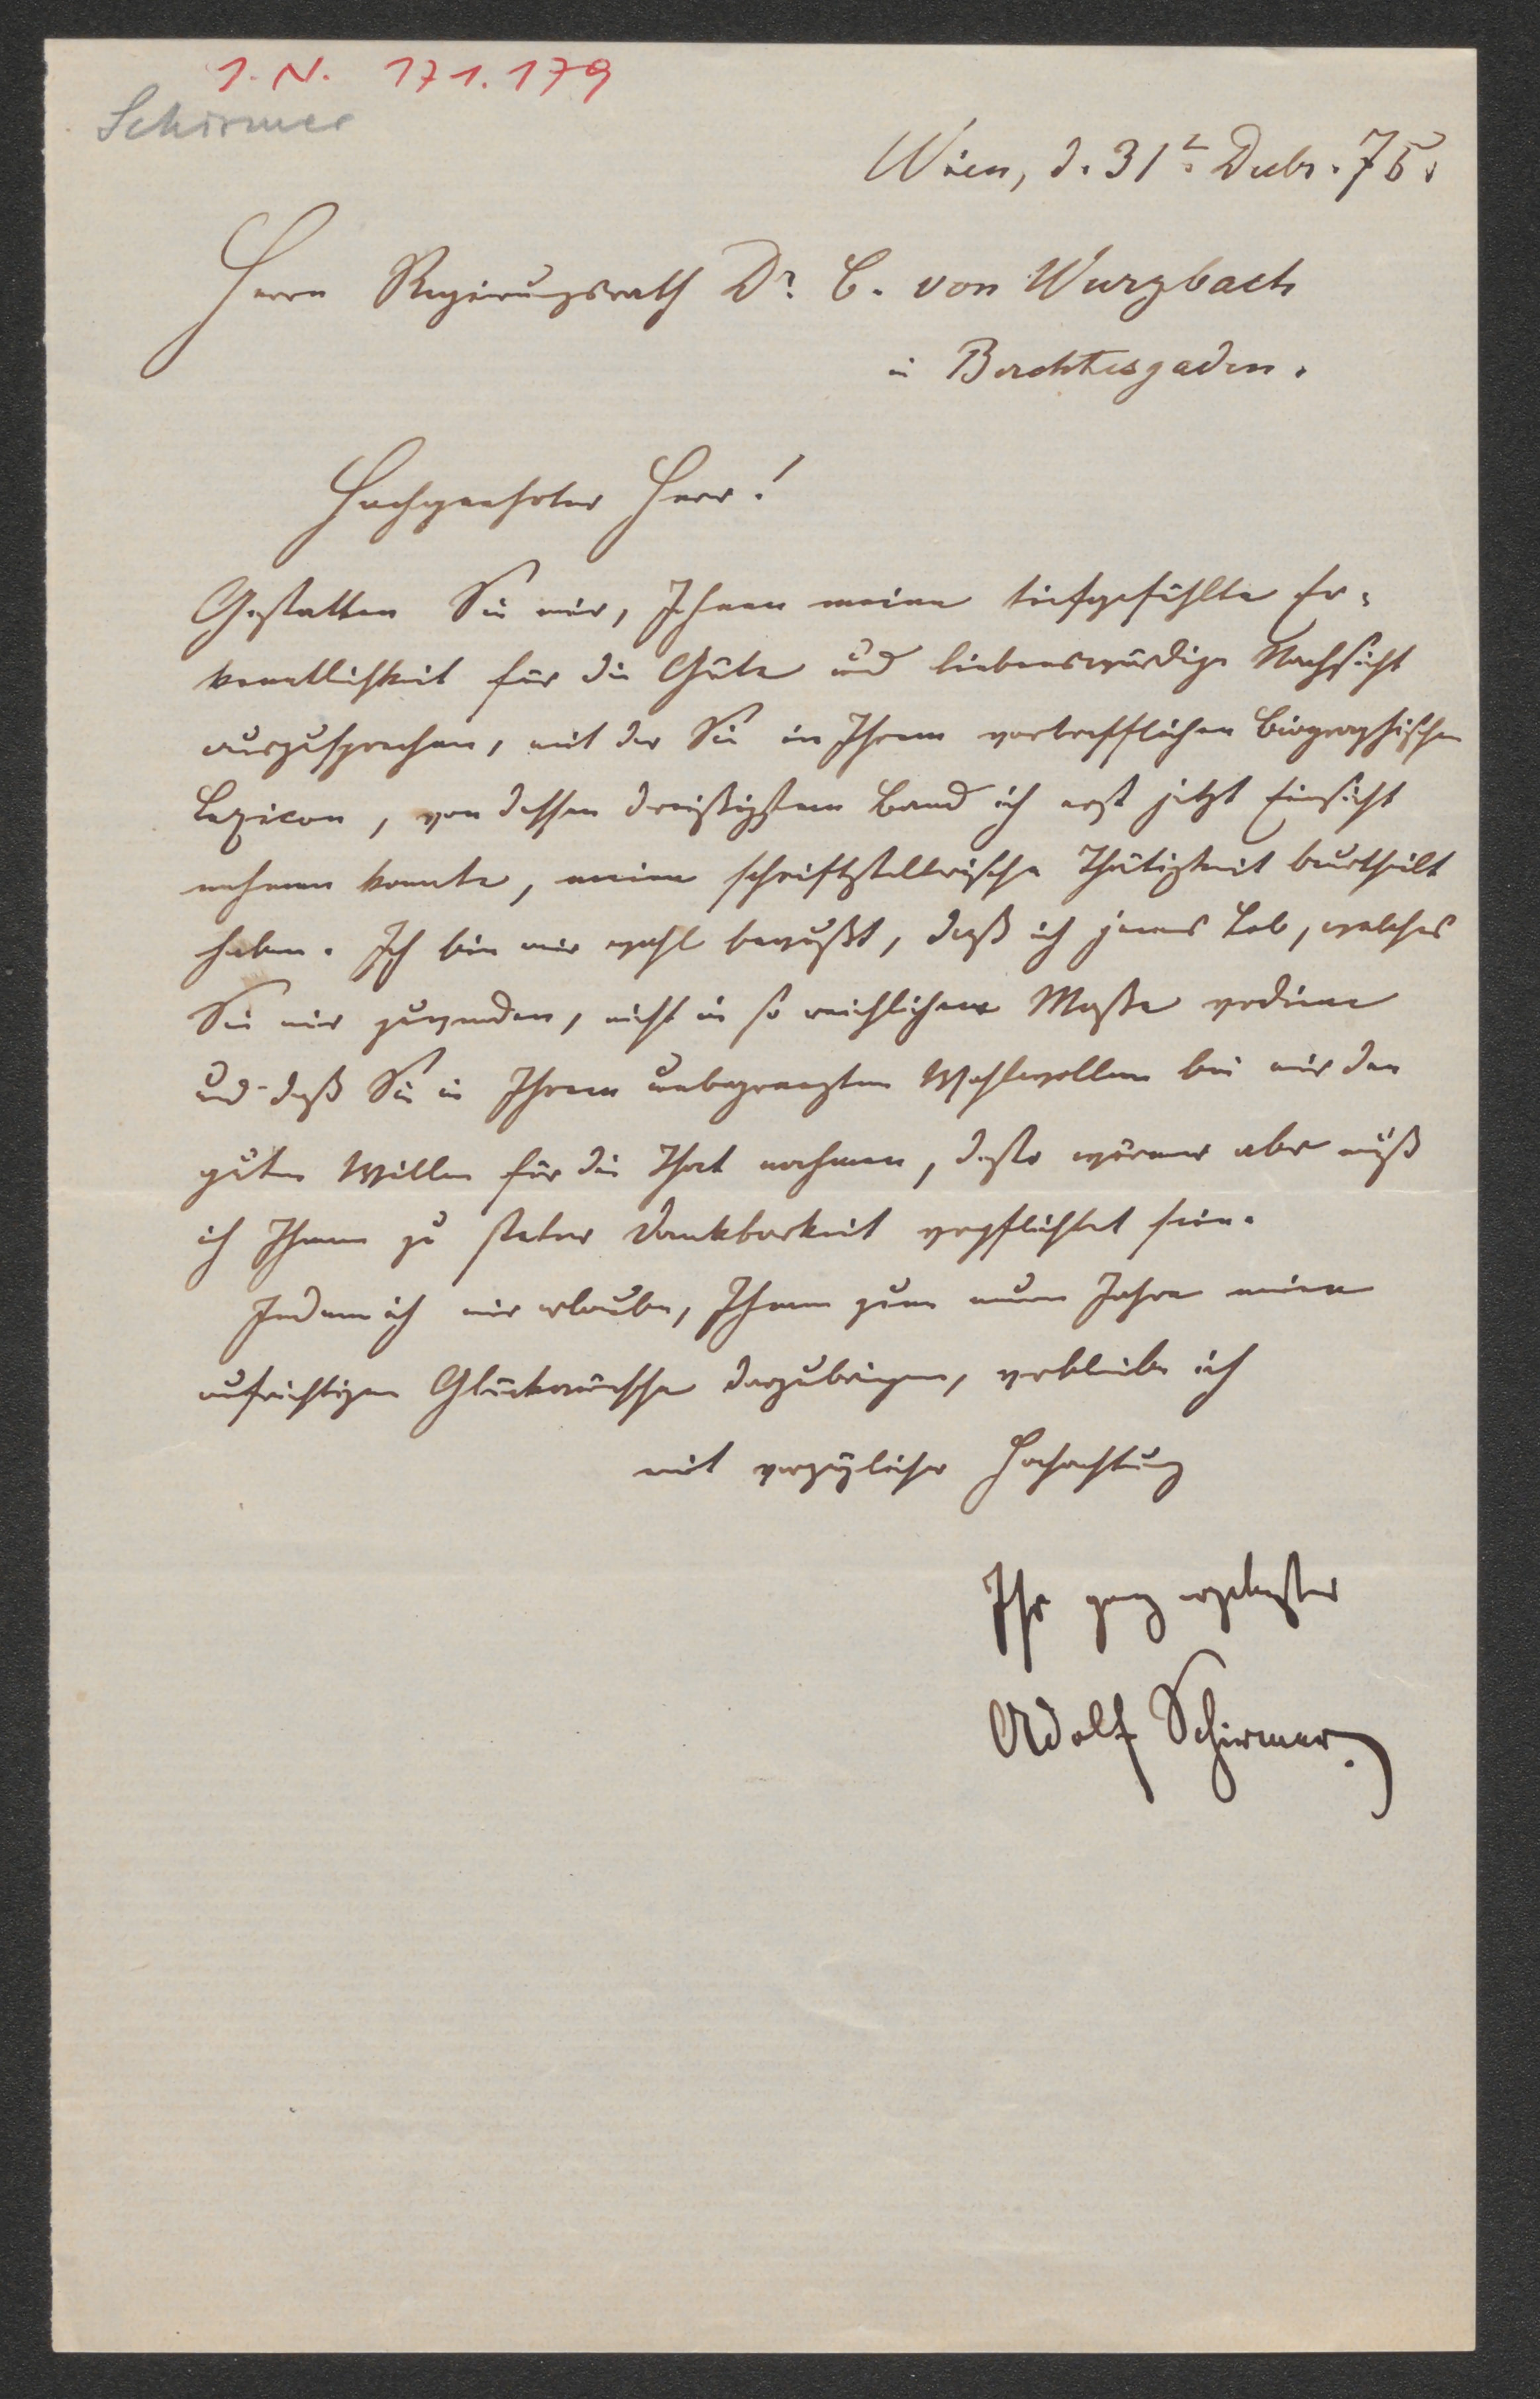 I. N. 171.179
Schirmer
Wien, d. 31t. Decbr. 75.
Herrn Regierungsrath Dr. C. von Wurzbach
in Berchtesgaden.
Hochgeehrter Herr!
Gestatten Sie mir, Ihnen meine tiefgefühlte Er-
kenntlichkeit für die Güte und liebenswürdige Nachsicht
auszusprechen, mit der Sie in Ihrem vortrefflichen biographischen
Lexicon, von dessen dreißigstem Band ich erst jetzt Einsicht
nehmen konnte, meine schriftstellerische Thätigkeit beurtheilt
haben. Ich bin mir wohl bewußt, daß ich jenes Lob, welches
Sie mir zuwenden, nicht in so reichlichem Maße verdiene
und daß Sie in Ihrem unbegrenzten Wohlwollen bei mir den
guten Willen für die That nahmen, desto wärmer aber muß
ich Ihnen zu steter Dankbarkeit verpflichtet sein.
Indem ich mir erlaube, Ihnen zum neuen Jahre meine
aufrichtigen Glückwünsche darzubringen, verbleibe ich
mit vorzüglicher Hochachtung
Ihr ganz ergebenster
Adolf Schirmer.